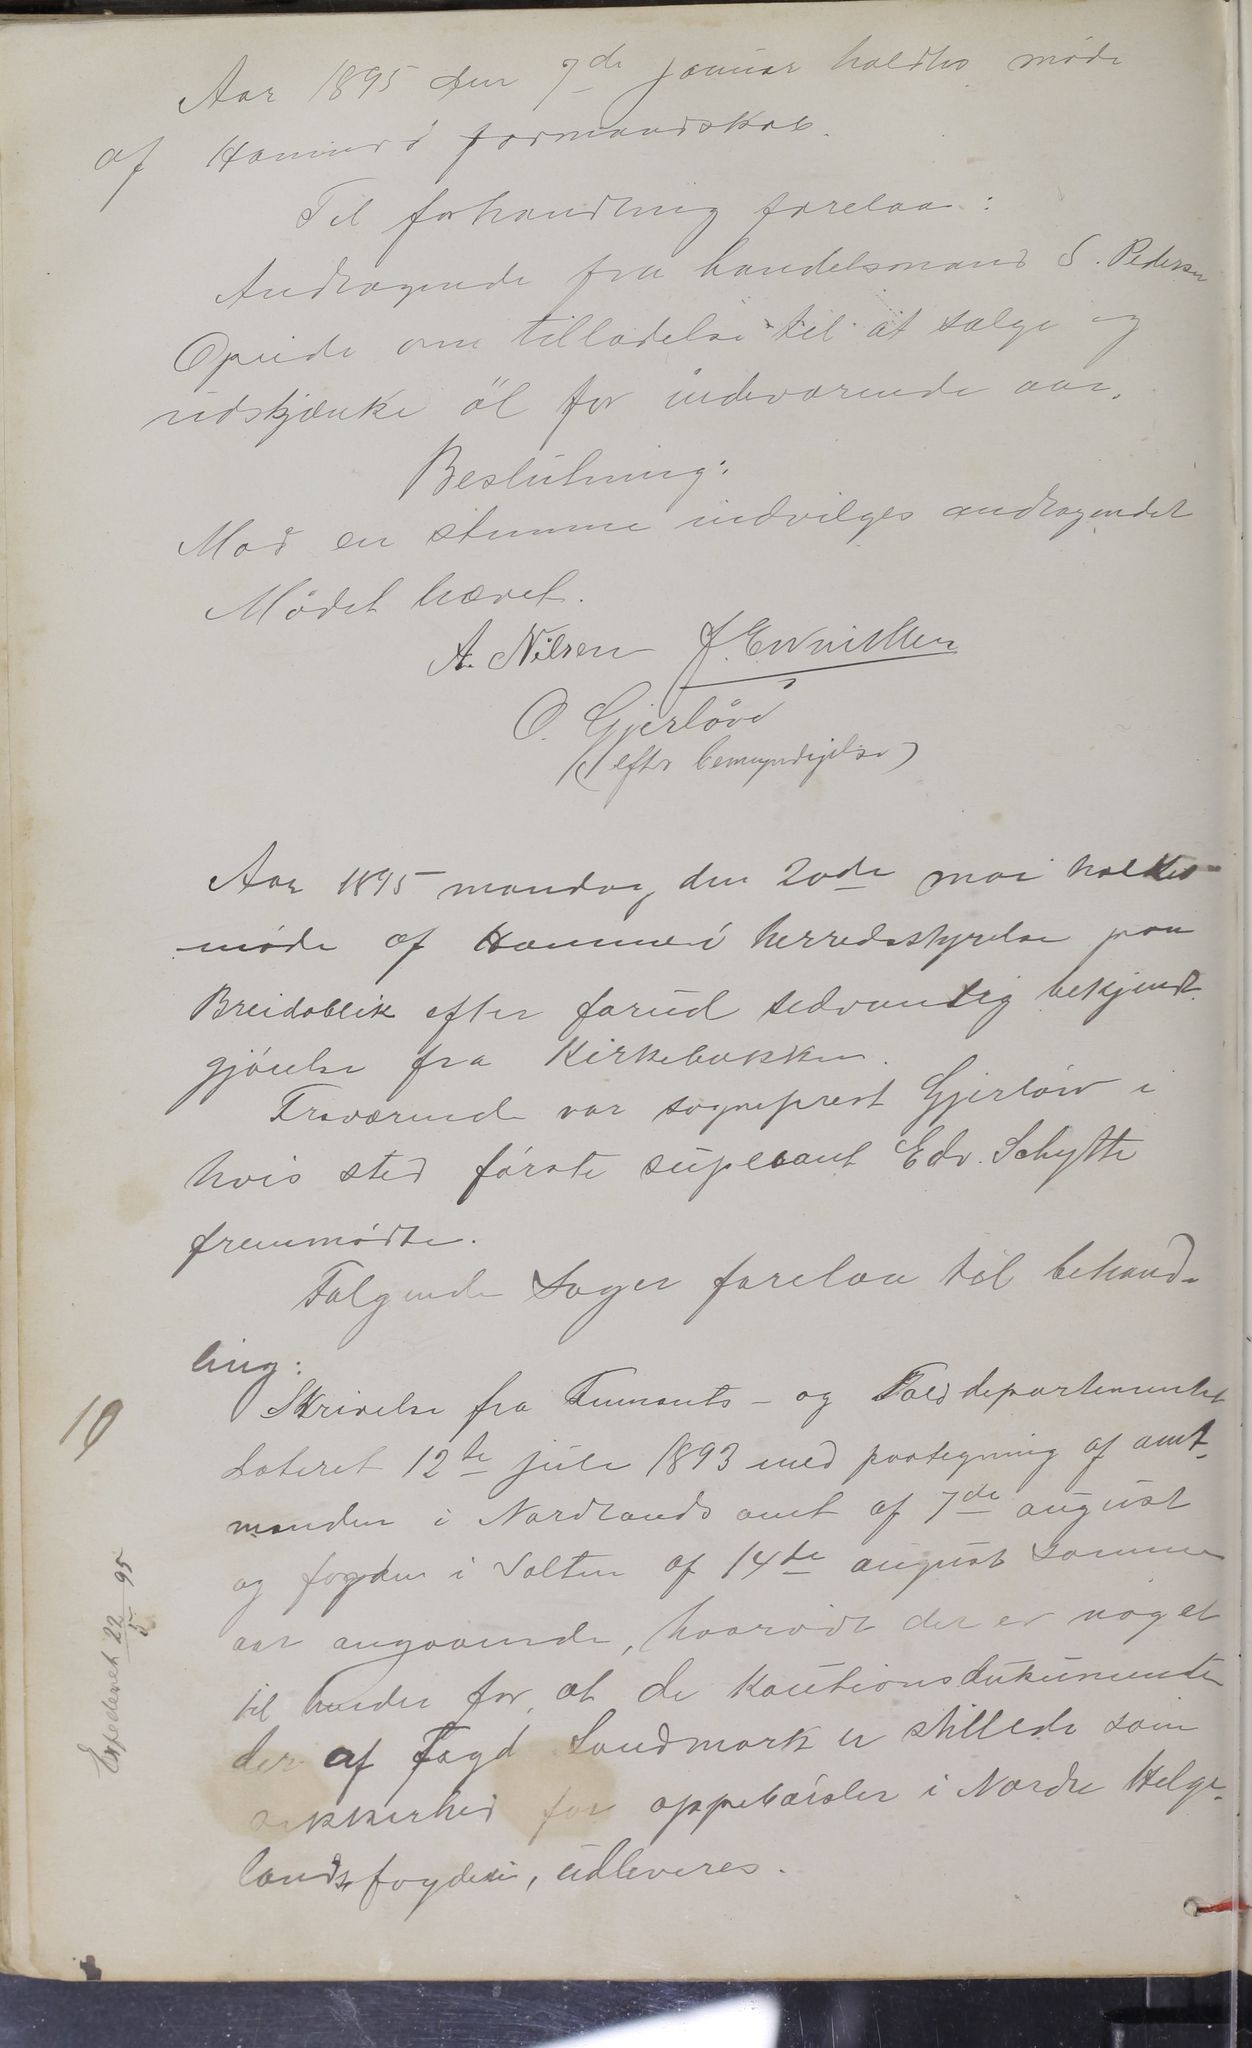 Aar 1895 den 7de januar holdtes møde
af Hamerø formandskab.
Til forhandling forelaa:
Andragende fra handelsmand S. Pedersen
Opeide om tilladelse til at sælge og
udskjænke öl for indeværende aar.
Beslutning:
Mod en stemme indvilges andragendet
Mødet hævet.
A. Nilsen
O. Gjerløw
(efter bemyndigelse)
Aar 1895 mandag den 20de mai holdtes
møde af Hammerø herredsstyrelse paa
Breidablik efter forud sedvanlig bekjendt
gjørelse fra Kirkebakken.
Fraværende var sogneprest Gjerløw i
hvis sted første supleant Edv. Schytte
fremmødte.
Følgende Sager forelaa til behand-
ling:
10
Skrivelse fra Finants- og Tolddepartementet
dateret 12te juli 1893 med paategning af amt-
manden i Nordlands amt af 7de august
og fogden i Salten af 14de august samme
aar angaaende, hvorvidt der er noget
til hinder for, at de Kautionsdokumenter
der af Fogd Sandmark er stillede som
sikkerhed for oppebørsler i Nordre Helge-
lands fogderi, udleveres.
Expederet 22/5 95